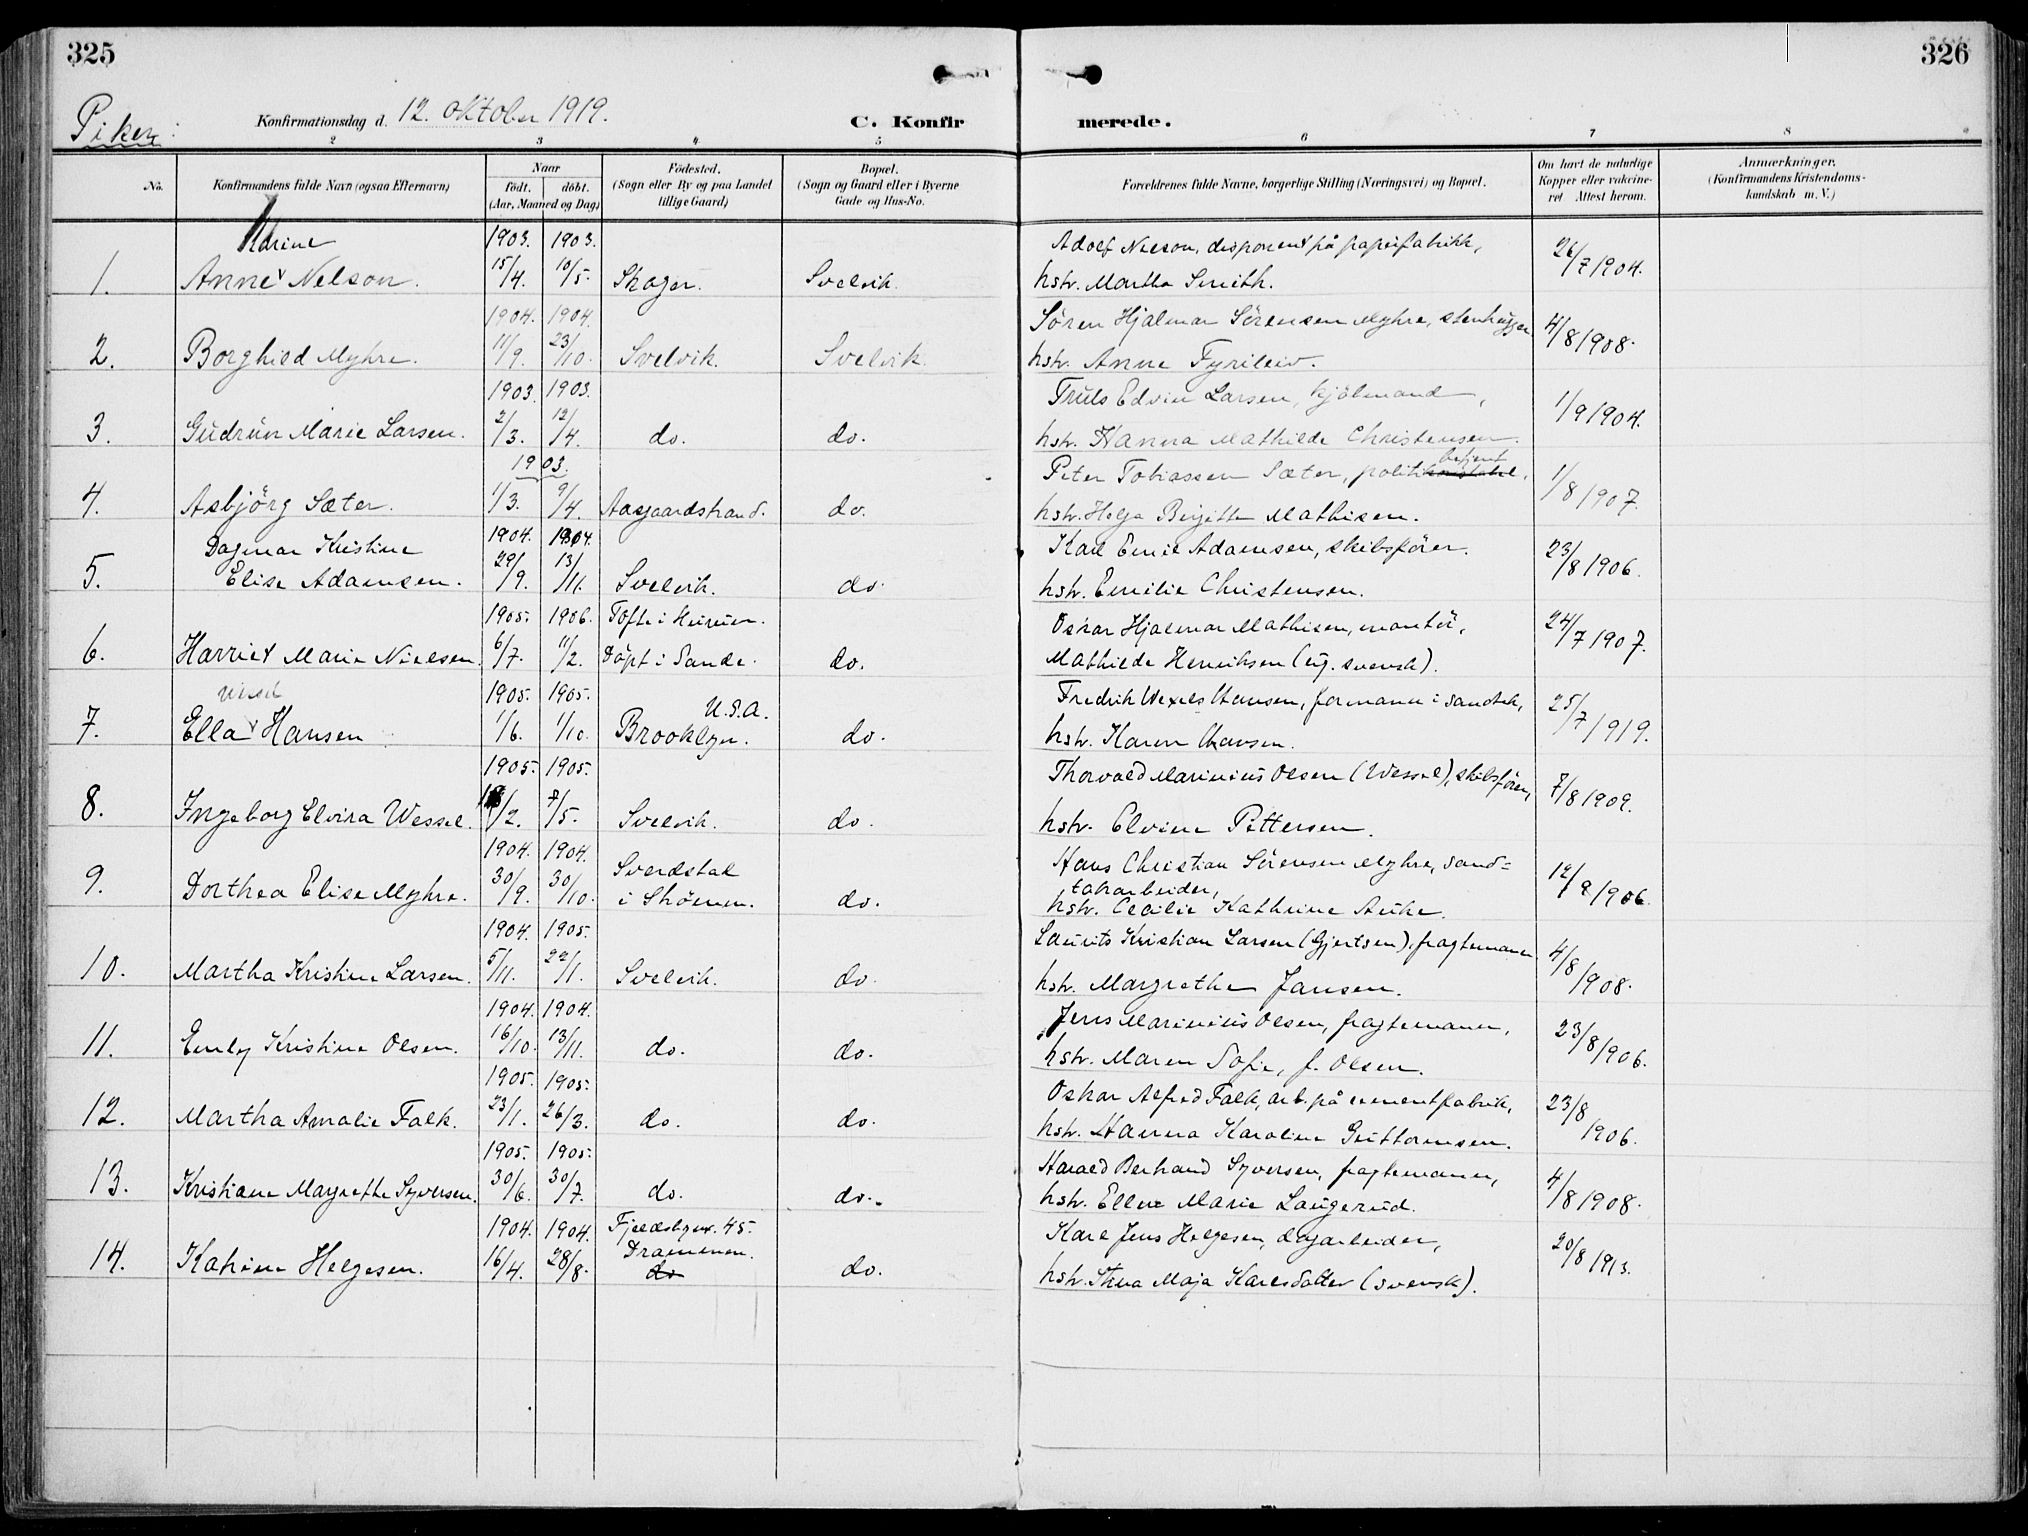 325
326
Piker:
Konfirmationsdag d. 12. oktober 1919.
C. Konfir
merede.
2
3
4
5
6
7
8
9
No.
Konfirmandens fulde Navn (ogsaa Efternavn)
Naar
født. døbt.
(Aar, Maaned og Dag)
Födested.
(Sogn eller By og paa Landet
tillige Gaard)
Bopæl.
(Sogn og Gaard eller i Byerne
Gade og Hus-No.
Forældrenes fulde Navne, borgerlige Stilling (Næringsvei) og Bopæl.
Om havt de naturlige
Kopper eller vakcine-
ret. Attest herom.
Anmærkninger.
(Konfirmandens Kristendoms-
kundskab m. V.)
Adrine 1903. 1903. Adolf Nelson, disponent på papirfabrikk,
1. Anne Nelson. 15/4. 10/5. Skoger. Svelvik. hstr. Martha Smith. 26/7 1904.
1904. 1904. Søren Hjalmar Sörensen Myhre, stenhugger
2. Borghild Myhre. 11/9. 23/10. Svelvik. Svelvik. hstr. Anne Fyrileiv. 4/8 1908.
1903. 1903. Truls Edvin Larsen, kjölmand,
3. Gudrun Marie Larsen. 2/3. 12/4. do. do. hstr. Hanna Mathilde Christensen. 1/9 1904.
1903. Peter Tobiassen Sæter, politibetjent
4. Asbjörg Sæter. 1/3. 9/4. Aasgaardstrand. do. hstr. Helga Birgitte Mathisen. 1/8 1907.
Dagmar Kristine 1904. 1904. Karl Emil Adamsen, skibsförer.
5. Elise Adamsen. 29/9. 13/11. Svelvik. do. hstr. Emilie Christensen. 23/8 1906.
1905. 1906. Tofte i Hurum. Oskar Hjalmar Mathisen, montör,
6. Harriet Marie Nielsen. 6/7. 11/2. Döpt i Sande. do. Mathilde Henriksen (ug. svensk). 24/7 1907.
Wexel 1905. 1905. U.S.A. Fredrik Wexels Hansen, formann i sandtak,
7. Ella Hansen 1/6. 1/10. Brooklyn. do. hstr. Karen Hansen. 25/7 1919.
1905. 1905. Thorvald Marinius Olsen (Wessel), skibsförer,
8. Ingeborg Elvira Wessel. /2. 7/5. Svelvik. do. hstr. Elvine Pettersen. 7/8 1909.
1904. 1904. Sverdstad Hans Christian Sörensen Myhre, sand-
9. Dorthea Elise Myhre. 30/9. 30/10. i Strömm. do. takarbeider, 12/8 1906.
hstr. Cecilie Kathrine Auke.
1904. 1905. Laurits Kristian Larsen (Gjertsen), fragtemann
10. Martha Kristine Larsen. 5/11. 22/1. Svelvik. do. hstr. Margrethe Jansen. 4/8 1908.
1904. 1904. Jens Marinius Olsen, fragtemann,
11. Emly Kristine Olsen. 16/10. 13/11. do. do. hstr. Maren Sofie, f. Olsen. 23/8 1906.
1905. 1905. Oskar Alfred Falk, arb. på cementfabrik,
12. Martha Amalie Falk. 23/1. 26/3. do. do. hstr. Hanna Karoline Guttormsen. 23/8 1906.
1905. 1905. Harald Berhard Syversen, fragtemann,
13. Kristiane Margrethe Syversen. 30/6. 30/7. do. do. hstr. Ellen Marie Laugerud. 4/8 1908.
1904. 1904. Fjeldsbyex. 45. Karl Jens Helgesen, dagarbeider,
14. Katrine Helgesen. 16/4. 28/8. Drammen. do do. hstr. Maja Karlsdatter (svensk). 20/8 1913.